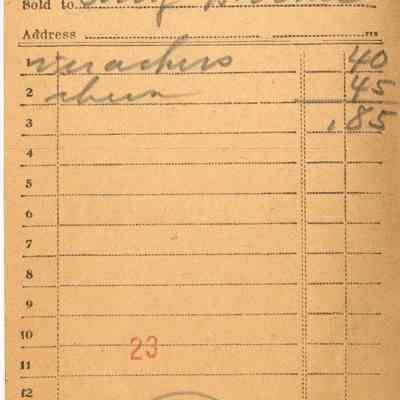 Sold to
Address
1 crackers 40
2 cheese 45
3 .85
4
5
6
7
8
9
10
23
11
12